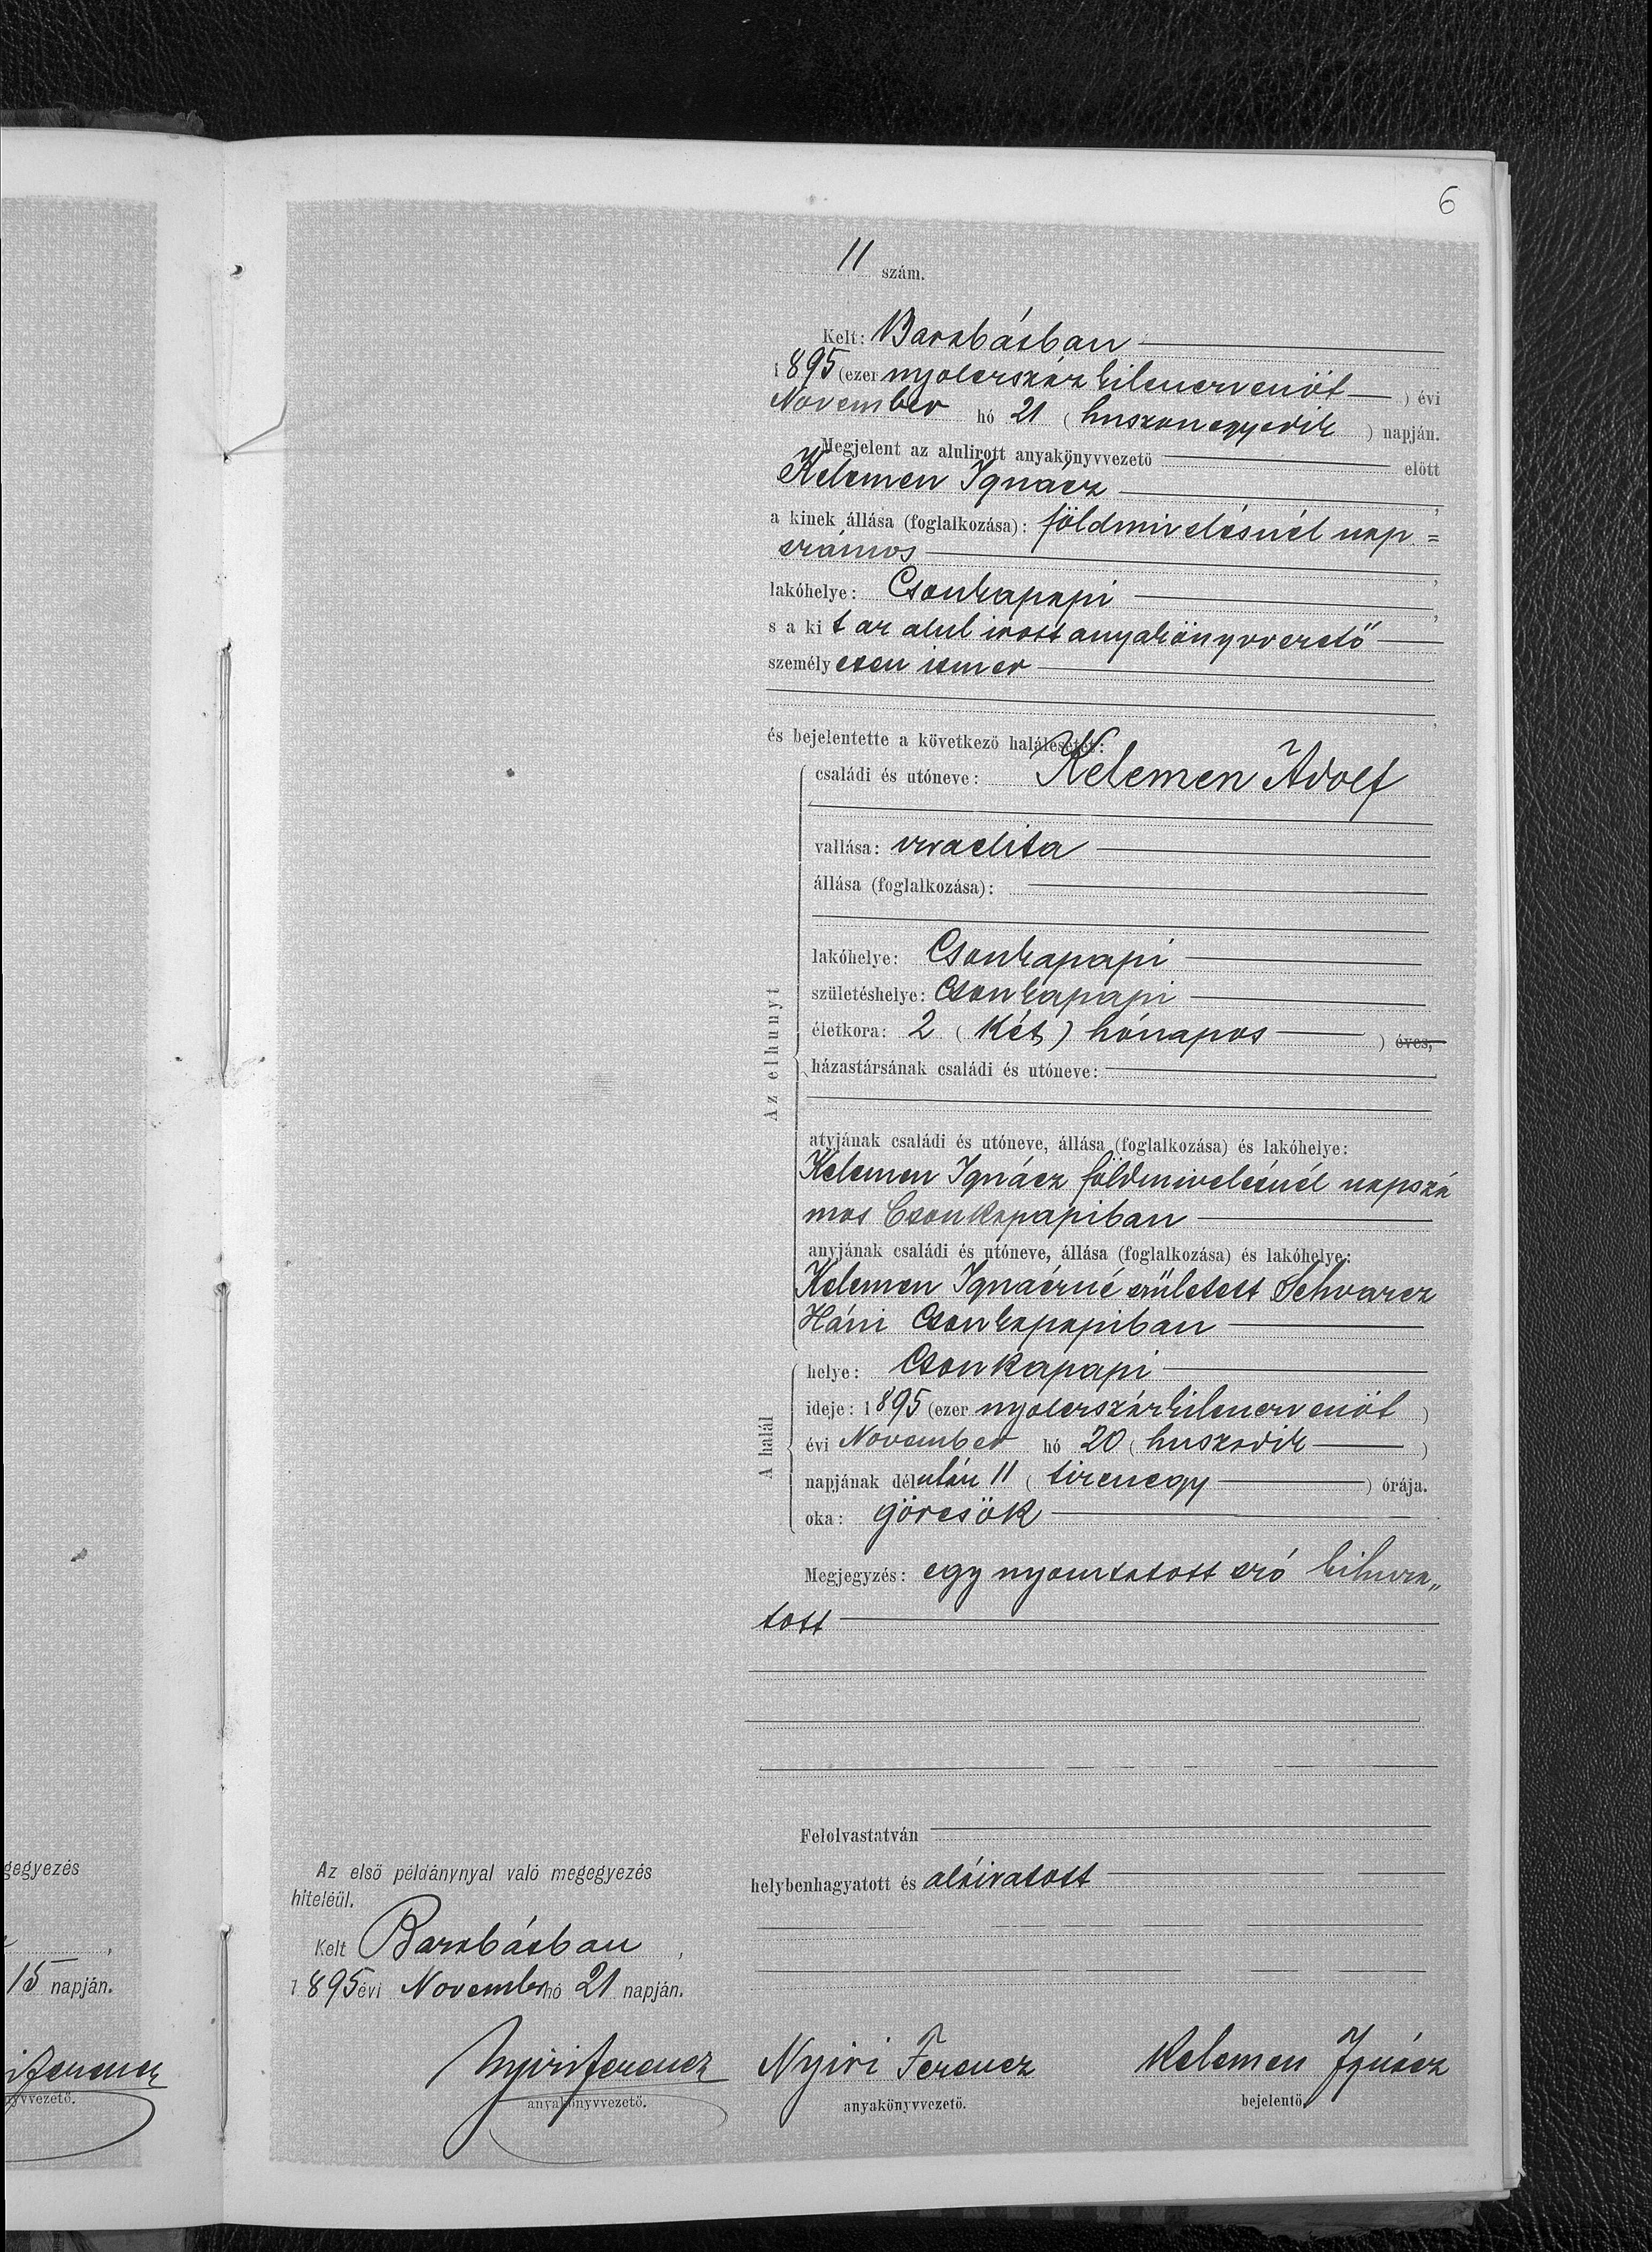 6
11 szám.
Kelt: Barabásban
1895 (ezer nyolczszáz kilenczvenöt ) évi
November hó 21 ( huszonegyedik ) napján.
Megjelent az alulirott anyakönyvvezető előtt
Kelemen Ignácz ,
a kinek állása (foglalkozása): földmivelésnél nap=
számos ,
lakóhelye: Csonkapapi ,
s a kit az alul irott anyakönyvvezető
személyesen ismer
,
és bejelentette a következő halálesetet:
Az elhunyt
családi és utóneve: Kelemen Adolf
vallása: izraelita
állása (foglalkozása):
lakóhelye: Csonkapapi
születéshelye: Csonkapapi
életkora: 2 ( két ) hónapos ) éves,
házastársának családi és utóneve:
atyjának családi és utóneve, állása (foglalkozása) és lakóhelye:
Kelemen Ignácz földmivelésnél napszá
mos Csonkapapiban
anyjának családi és utóneve, állása (foglalkozása) és lakóhelye:
Kelemen Ignáczné született Schvarcz
Háni Csonkapapiban
A halál
helye: Csonkapapi
ideje: 1895 (ezer nyolczszázkilenczvenöt )
évi November hó 20 ( huszadik )
napjának délután 11 ( tizenegy ) órája.
oka: görcsök
Megjegyzés: egy nyomtatott szó kihuza„
tott
Felolvastatván
helybenhagyatott és aláiratott
Az első példánynyal való megegyezés
hiteléül.
Kelt Barabásban ,
1895 évi November hó 21 napján.
Nyiri Ferencz Nyiri Ferencz Kelemen Ignácz
anyakönyvvezető. anyakönyvvezető. bejelentő.
gegyezés
,
15 napján.
iferencz
nyvvezető.